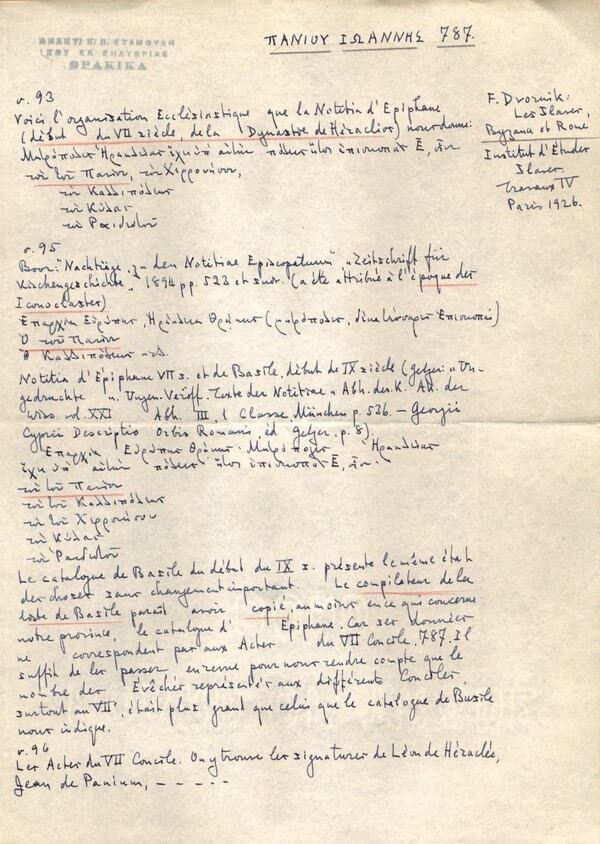 ΠΑΝΙΟΥ ΙΩΑΝΝΗΣ 787.
ΘΡΑΚΙΚΑ
σ. 93
Voici l'organisation Ecclésiastique que la Notitia d'Epiphane
(début du VII siècle, de la Dynastie de Héraclios) nous donne:
Μητρόπολις Ηρακλείας έχει υπό αυτήν πόλεις ήτοι επισκοπάς Ε̄, οίον
τον του Πανίου, τον Χερρονήσου,
τον Καλλιπόλεως
τον Κύλας
τον Ραιδεστού
F. Dvornik:
Les Slaves,
Byzance et Rome
Institut d'Etudes
Slaves
Travaux IV
Paris 1926.
σ. 95
Boor: "Nachträge zu den Notitiae Episcopatuum" „Zeitschrift für
Kirchengeschichte" 1894 pp. 523 et suiv. (a été attribué à l'époque des
Iconoclastes)
Επαρχία Ευρώπης, Ηράκλεια Θράκης (μητρόπολις, Επισκοπαί)
Ο του Πανίου
Ο Καλλιπόλεως κλ.
Notitia d'Epiphane VII s. et de Basile, début de IX siècle (gelzer: "Un-
gedruckte u. Ungen. Veröff. Texte der Notitiae" Abh. des K. Ak. der
Wiss. vol. XXI Abh. III, 1 Classe, München p. 536. — Georgii
Cyprii Descriptio Orbis Romani, éd gelzer. p. 8).
Επαρχία Ευρώπης Θράκης Μητρόπολις Ηρακλείας
έχει υπ' αυτήν πόλεις ήτοι επισκοπάς Ε̄, οίον.
τον του Πανίου
τον του Καλλιπόλεως
τον του Χερρονήσου
τον Κύλας
τον Ραιδεστού
Le catalogue de Basile du début du IX s. présente le même état
des choses sans changement important. Le compilateur de la
liste de Basile paraît avoir copié, au moins en ce qui concerne
notre province, le catalogue d' Epiphane. Car ses données
ne correspondent pas aux Actes du VII Concile. 787. Il
suffit de les passer en revue pour nous rendre compte que le
nombre des Évêchés représentés aux différents Conciles,
surtout au VII, était plus grand que celui que le catalogue de Basile
nous indique.
σ. 96
Les Actes du VII Concile. On y trouve les signatures de Léon de Héraclée,
Jean de Panium, — — – – –